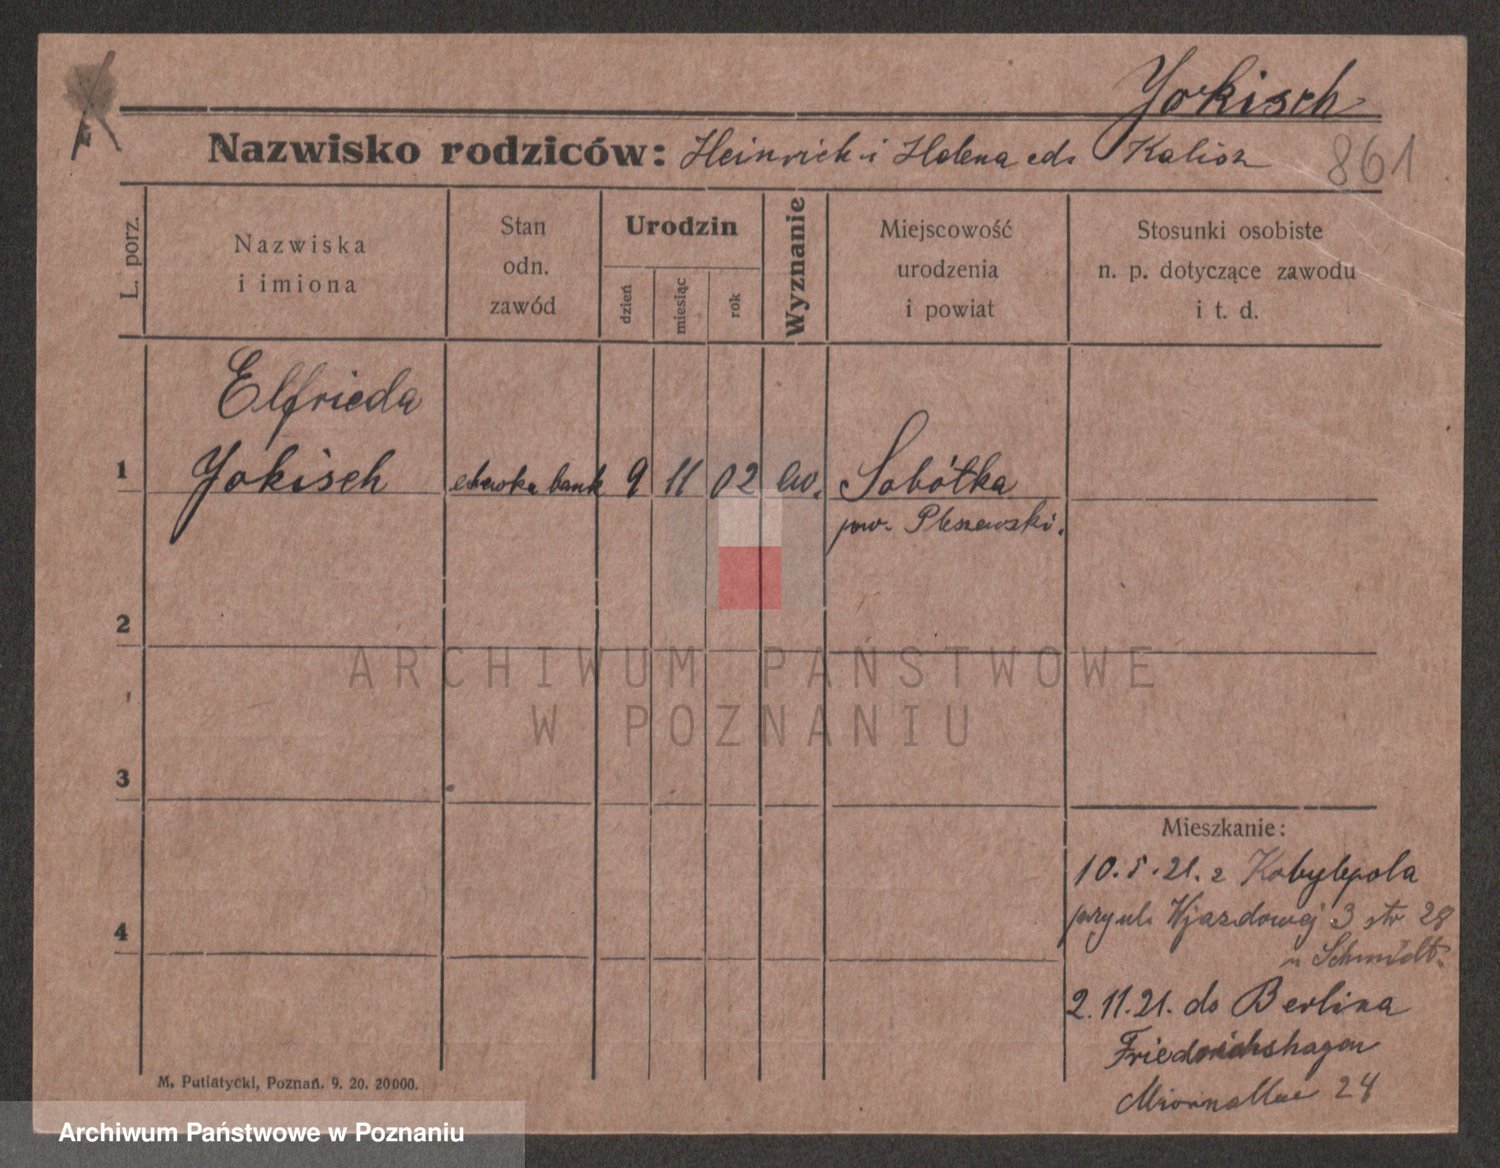 Yokisch
Nazwisko rodziców: Heinrich i Helena Kalisz 861
L. porz.
Nazwiska
i imiona
Stan
odn.
zawód
Urodzin
dzień
miesiąc
rok
Wyznanie
Miejscowość
urodzenia
i powiat
Stosunki osobiste
n. p. dotyczące zawodu
i t. d.
Elfrieda
1 Yokisch bank 9 11 02 ew. Sobótka
pow. Pleszewski.
2
3
4
Mieszkanie:
10.5.21. z Kobylepola
przy ul. Wjazdowej 3 str 28
u Schmidt.
2.11.21. do Berlina
Friedrichshagen
24
M. Putiatycki, Poznań. 9. 20. 20000.
ARCHIWUM PAŃSTWOWE
W POZNANIU
Archiwum Państwowe w Poznaniu